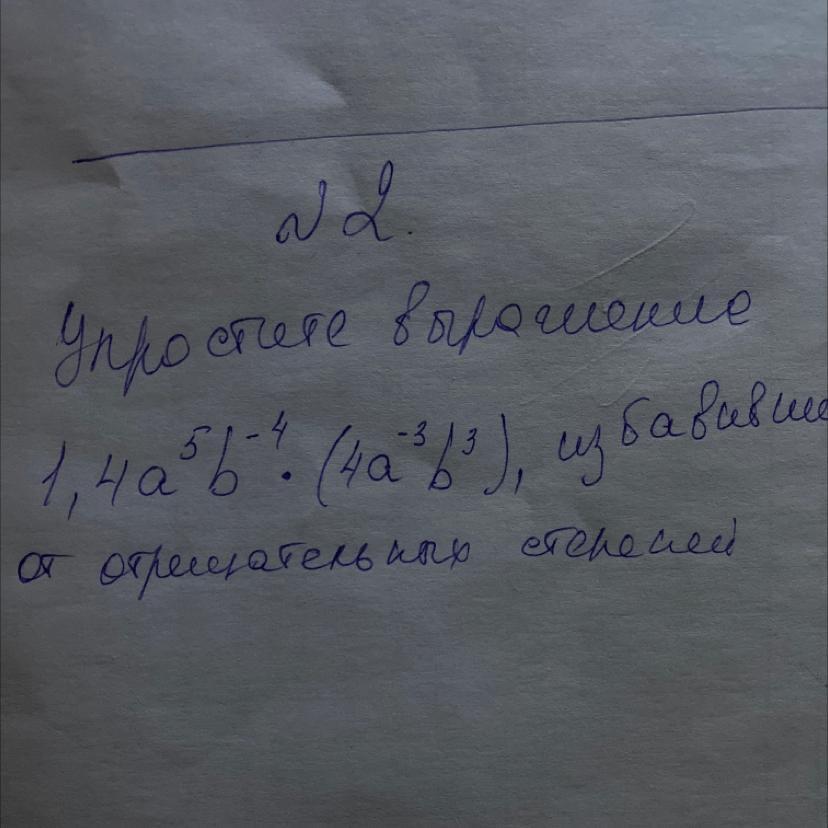 №2.
Упростите выражение
1,4a⁵b⁻⁴·(4a⁻³b³), избавивши
от отрицательных степеней